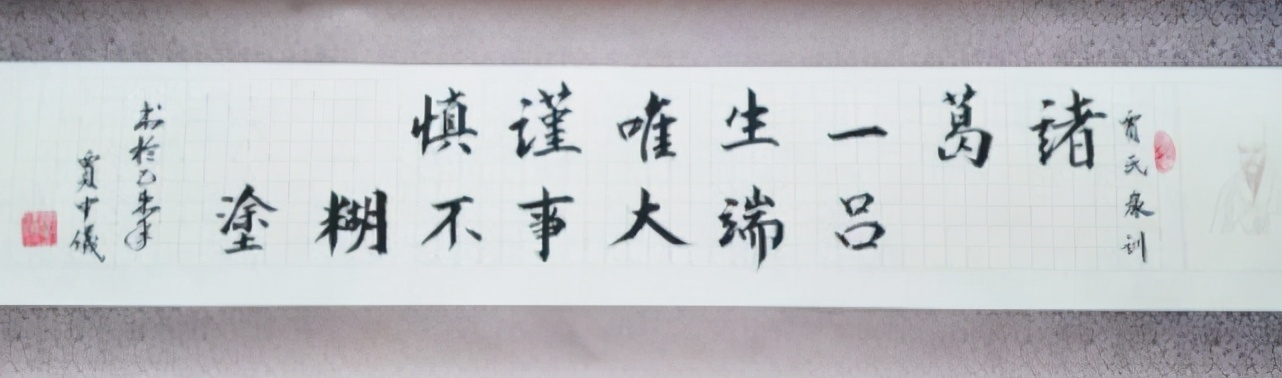 贾氏家训
諸葛一生唯謹慎
吕端大事不糊塗
书於乙未年
贾中儀